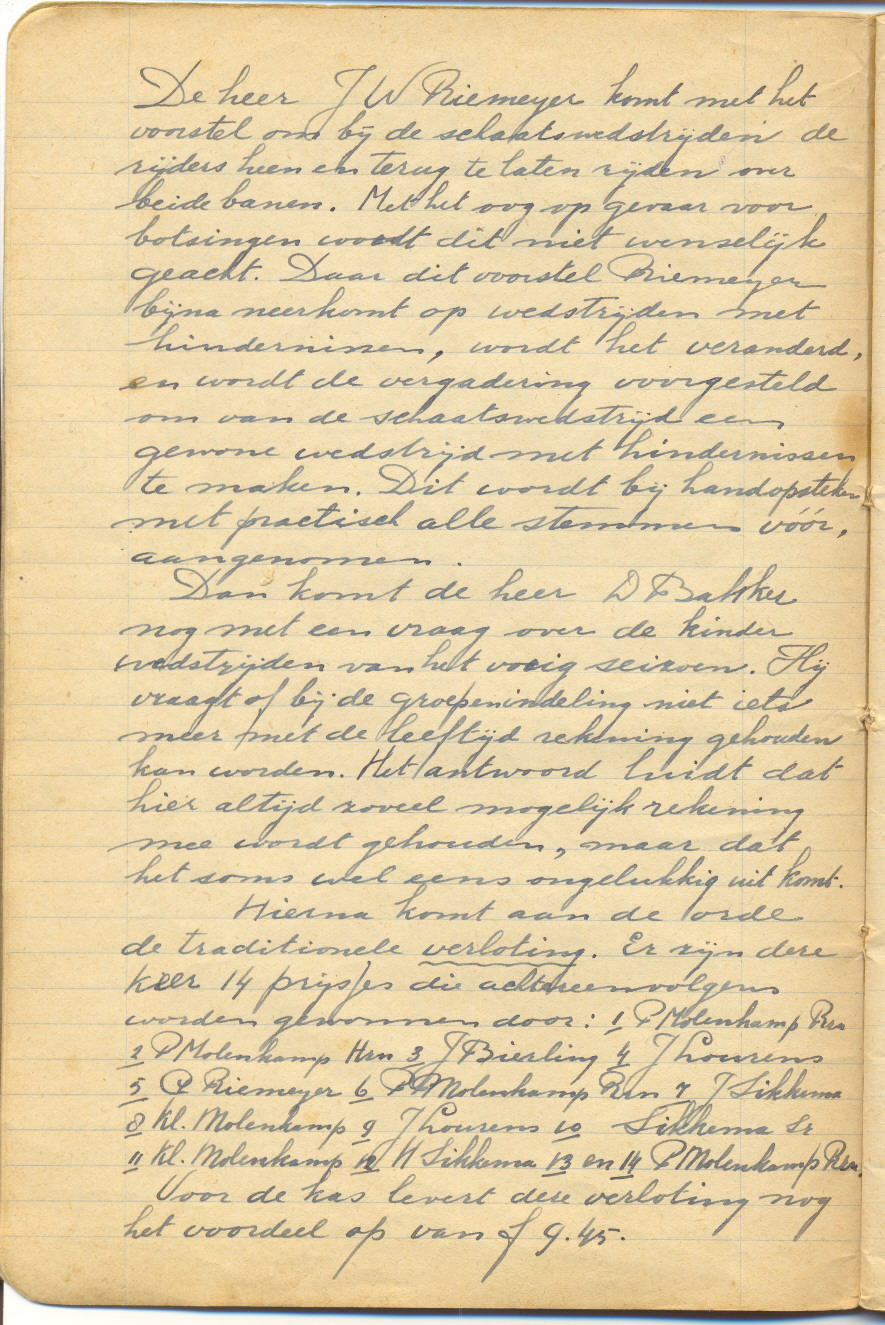 De heer J W Riemeyer komt met het
voorstel om bij de schaatswedstrijden de
rijders heen en terug te laten rijden over
beide banen. Met het oog op gevaar voor
botsingen wordt dit niet wenselijk
geacht. Daar dit voorstel Riemeyer
bijna neerkomt op wedstrijden met
hindernissen, wordt het veranderd,
en wordt de vergadering voorgesteld
om van de schaatswedstrijd een
gewone wedstrijd met hindernissen
te maken. Dit wordt bij handopsteken
met practisch alle stemmen vóór,
aangenomen.
Dan komt de heer D Bakker
nog met een vraag over de kinder
wedstrijden van het vorig seizoen. Hij
vraagt of bij de groepenindeling niet iets
meer met de leeftijd rekening gehouden
kan worden. Het antwoord luidt dat
hier altijd zoveel mogelijk rekening
mee wordt gehouden, maar dat
het soms wel eens ongelukkig uit komt.
Hierna komt aan de orde
de traditionele verloting. Er zijn deze
keer 14 prijsjes die achtereenvolgens
worden gewonnen door: 1 P Molenkamp Rzn
2 P Molenkamp Hzn 3 J Bierling 4 J Lourens
5 Riemeyer 6 P Molenkamp Rzn 7 J Sikkema
8 Kl. Molenkamp 9 J Lourens 10 Sikkema Sr
11 Kl. Molenkamp 12 H Sikkema 13 en 14 P Molenkamp Rzn.
Voor de kas levert deze verloting nog
het voordeel op van f 9.45.